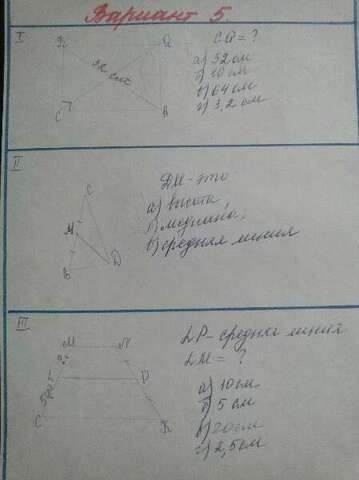 Вариант 5.
I
R Q CQ = ?
32 см а) 32 см
б) 10 см
в) 64 см
C г) 3,2 см
II
C DM - это
а) высота
M б) медиана
B D в) средняя линия
III
M N LP - средняя линия
LM = ?
P а) 10 см
5 см б) 5 см
в) 20 см
C K г) 2,5 см